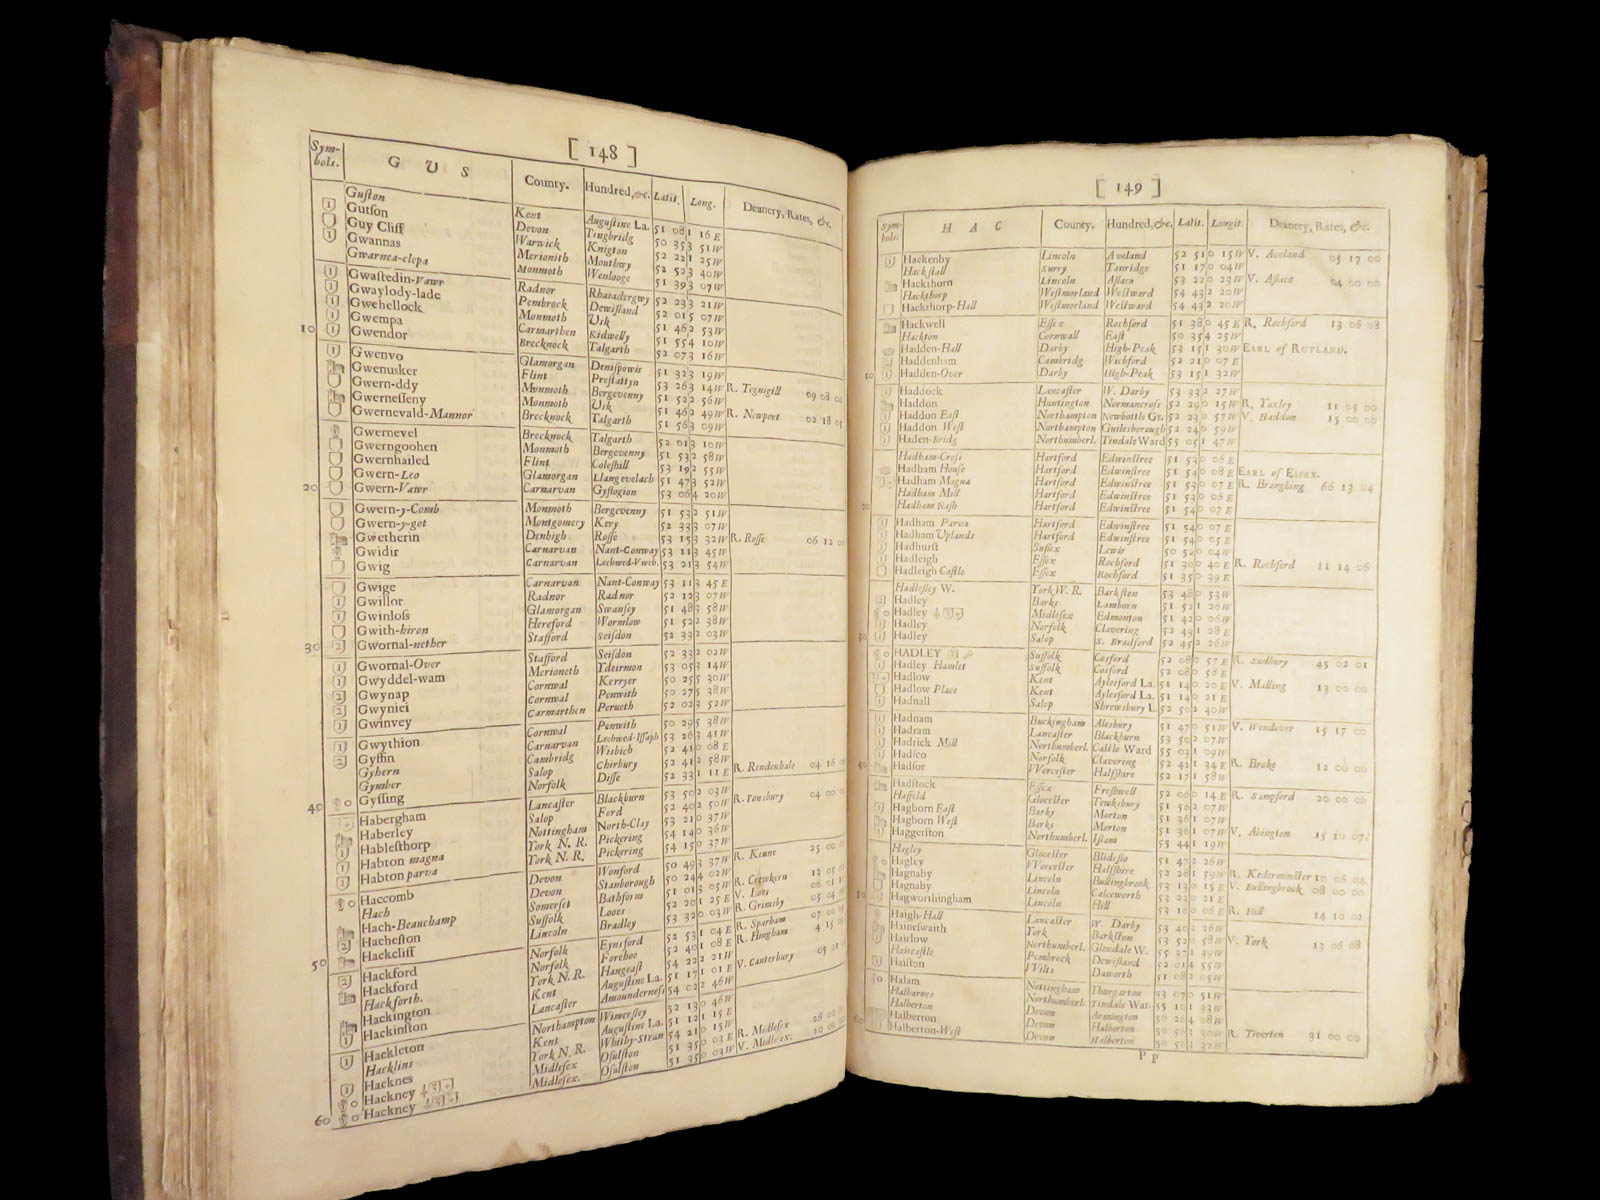 [ 148 ]
Sym-bols. G U S County. Hundred, &c. Latit. Long. Deanery, Rates, &c.
Guſton Kent Auguſtine La. 51 08 1 16 E
1 Gutſon Devon Tingbridg 50 35 3 51 W
Guy Cliff Warwick Knigton 52 22 1 25 W
1 Gwannas Merionith Mouthwy 52 52 3 40 W
Gwarnea-clepa Monmoth Wenlooge 51 39 3 07 W
1 Gwaſtedin-Vawr Radnor Rhaiadergwy 52 23 3 21 W
Gwaylody-lade Pembrock Dewiſland 52 01 5 07 W
Gwehellock Monmoth Uſk 51 46 2 53 W
Gwempa Carmarthen Kidwelly 51 55 4 10 W
10 1 Gwendor Brecknock Talgarth 52 07 3 16 W
1 Gwenvo Glamorgan Deniſpowis 51 32 3 19 W
Gwenusker Flint Preſtattyn 53 26 3 14 W R. Tegnigill 09 08 00
Gwern-ddy Monmoth Bergevenny 51 52 2 56 W
Gwerneſſeny Monmoth Uſk 51 46 2 49 W R. Newport 02 18 05
Gwernevald-Mannor Brecknock Talgarth 51 56 3 09 W
Gwernevel Brecknock Talgarth 52 01 3 10 W
Gwerngoohen Monmoth Bergevenny 51 53 2 58 W
Gwernhailed Flint Coleſhill 53 19 2 55 W
Gwern-Leo Glamorgan Llangevelach 51 47 3 52 W
20 Gwern-Vawr Carnarvan Gyfflogion 53 06 4 20 W
Gwern-y-Comb Monmoth Bergevenny 51 53 2 51 W
Gwern-y-got Montgomery Kery 52 33 3 07 W
Gwetherin Denbigh Roſſe 53 15 3 32 W R. Roſſe 06 12
Gwidir Carnarvan Nant-Conway 53 11 3 45 W
Gwig Carnarvan Lechwed-Vwch. 53 21 3 54 W
Gwige Carnarvan Nant-Conway 53 11 3 45 E
1 Gwillor Radnor Radnor 52 12 3 07 W
1 Gwinloſs Glamorgan Swanſey 51 48 3 58 W
Gwith-hiron Hereford Wormlow 51 52 2 38 W
30 2 Gwornal-nether Stafford Seiſdon 52 33 2 03 W
1 Gwornal-Over Stafford Seiſdon 52 33 2 02 W
1 Gwyddel-wam Merioneth Ydeirmon 53 05 3 14 W
2 Gwynap Cornwal Kerryer 50 25 5 30 W
2 Gwynici Cornwal Penwith 50 27 5 38 W
1 Gwinvey Carmarthen Perueth 52 02 3 52 W
1 Gwythion Cornwal Penwith 50 29 5 38 W
2 Gyffin Carnarvan Lechwed-Iſſaph 53 26 3 41 W
Gyhern Cambridg Wisbich 52 41 0 08 E
Gymber Salop Chirbury 52 41 2 58 W
40 Gyſſing Norfolk Diſſe 52 33 1 11 E R. Rendenhale 04 16
Habergham Lancaſter Blackburn 53 50 2 03 W
Haberley Salop Ford 52 40 2 50 W R. Ponsbury 04 00
1 Hableſthorp Nottingham North-Clay 53 21 0 37 W
1 Habton magna York N. R. Pickering 54 14 0 36 W
1 Habton parva York N. R. Pickering 54 15 0 37 W
Haccomb Devon Wonford 50 49 3 37 W R. Kenne 25 00
Hach Devon Stanborough 50 24 4 02 W
Hach-Beauchamp Somerſet Bathform 51 01 3 05 W R. Crewkern 13 05
2 Hacheſton Suffolk Looes 52 20 1 25 E V. Loes 06 01
50 Hackcliff Lincoln Bradley 53 32 0 03 W R. Grimsby 05 04
2 Hackford Norfolk Eynsford 52 53 1 04 E R. Sparham 07 00
Hackford Norfolk Forehoe 52 40 1 08 E R. Hingham 4 15
Hackforth. York N. R. Hangeaſt 54 22 2 21 W
Hackington Kent Auguſtine La. 51 17 1 01 E V. Canterbury 05 01
1 Hackinſton Lancaſter Amounderneſs 54 02 2 46 W
1 Hackleton Northampton Wimerſley 52 13 0 46 W
Hacklins Kent Auguſtine La. 51 12 1 15 E
1 Hacknes York N. R. Whitby-Stran 54 21 0 15 W
Hackney Midleſex Oſulſton 51 35 0 03 E R. Midleſex 26 00
60 Hackney Midleſex. Oſulſton 51 35 0 03 W V. Midleſex. 20 00
[ 149 ]
Sym-bols. H A C County. Hundred, &c. Latit. Longit. Deanery, Rates, &c.
1 Hackenby Lincoln Aveland 52 51 0 15 W V. Aveland 05 17 00
Hackſtall Surry Tanridge 51 17 0 04 W
Hackthorn Lincoln Aſlaco 53 22 0 23 W V. Aſlaco 04 00 00
Hackthorp Weſtmorland Weſtward 54 43 2 20 W
Hackthorp-Hall Weſtmorland Weſtward 54 43 2 20 W
Hackwell Eſſex Rochford 51 38 0 45 E R. Rochford 13 06 08
Hackton Cornwall Eaſt 50 35 4 25 W
Hadden-Hall Darby High-Peak 53 15 1 30 W EARL of RUTLAND.
Haddenham Cambridg Wichford 52 21 0 07 E
10 Hadden-Over Darby High-Peak 53 15 1 32 W
Haddock Lancaſter W. Darby 53 33 2 27 W
Haddon Huntington Normancroſs 52 29 0 15 W R. Yaxley 11 05 00
Haddon Eaſt Northampton Newbottle Gr. 52 23 0 57 W V. Haddon 15 00 00
Haddon Weſt Northampton Guilesborough 52 24 0 59 W
Haden-Bridg Northumberl. Tindale Ward 55 05 1 47 W
Hadham-Croſs Hartford Edwinſtree 51 53 0 06 E
Hadham Houſe Hartford Edwinſtree 51 54 0 08 E EARL of ESSEX.
Hadham Magna Hartford Edwinſtree 51 53 0 07 E R. Branghing 66 13 04
Hadham Mill Hartford Edwinſtree 51 53 0 06 E
20 Hadham Naſh Hartford Edwinſtree 51 54 0 07 E
Hadham Parva Hartford Edwinſtree 51 54 0 07 E
Hadham Uplands Hartford Edwinſtree 51 54 0 05 E
Hadhurſt Suſſex Lewis 50 52 0 04 W
Hadleigh Eſſex Rochford 51 30 0 40 E R. Rochford 11 14 06
Hadleigh Caſtle Eſſex Rochford 51 35 0 39 E
Hadleſley W. York W. R. Barkſton 53 48 0 53 W
2 Hadley Barks Lamborn 51 52 1 26 W
Hadley Midleſex Edmonton 51 42 0 06 W
Hadley Norfolk Clavering 52 43 1 28 E
30 Hadley Salop S. Bradford 52 45 2 26 W
HADLEY Suffolk Cosford 52 08 0 57 E R. Sudbury 45 02 01
1 Hadley Hamlet Suffolk Cosford 52 08 0 58 E
Hadlow Kent Aylesford La. 51 14 0 20 E V. Malling 13 00 00
Hadlow Place Kent Aylesford La. 51 14 0 21 E
Hadnall Salop Shrewsbury L. 52 50 2 40 W
Hadnam Buckingham Alesbury 51 47 0 51 W V. Wendover 15 17 00
Hadram Lancaſter Blackburn 53 50 2 07 W
Hadrick Mill Northumberl. Caſtle Ward 55 03 1 09 W
Hadſco Norfolk Clavering 52 42 1 34 E R. Broke 12 00 00
40 Hadſor VVorceſter Halfſhire 52 17 1 58 W
Hadſtock Eſſex Freſhwell 52 06 0 14 E R. Sampford 20 00 00
Haffeld Gloceſter Tewksbury 51 56 2 07 W
Hagborn Eaſt Barks Morton 51 36 1 07 W
Hagborn Weſt Barks Morton 51 36 1 07 W V. Abington 15 10 07
Haggerſton Northumberl. Iſlam 55 44 1 19 W
Hagley Gloceſter Blideſlo 51 47 2 26 W
Hagley VVorceſter Halfſhire 52 28 1 59 W R. Kederminſter 10 06 04
Hagnaby Lincoln Bullingbrook 53 13 0 15 E V. Bullingbrook 08 00 00
Hagnaby Lincoln Calceworth 53 03 0 21 E
Hagworthingham Lincoln Hill 53 16 0 06 E R. Hill 14 10 02
Haigh-Hall Lancaſter W. Darby 53 40 2 26 W
Haineſwaith York Barkſton 53 52 0 58 W V. York 13 06 08
Hairlow Northumberl. Glendale W. 55 37 1 39 W
Haircaſtle Pembrock Dewiſland 52 01 4 55 W
Haiſton VVilts Daworth 51 08 2 05 W
Halam Nottingham Thurgarton 53 07 0 51 W
Halbarnes Northumberl. Tindale War. 55 10 1 33 W
Halberton Devon Armington 50 26 4 08 W
Halberton Devon Halberton 50 56 3 30 W R. Tiverton 31 00 00
Halberton-Weſt Devon Halberton 50 56 3 32 W
P p